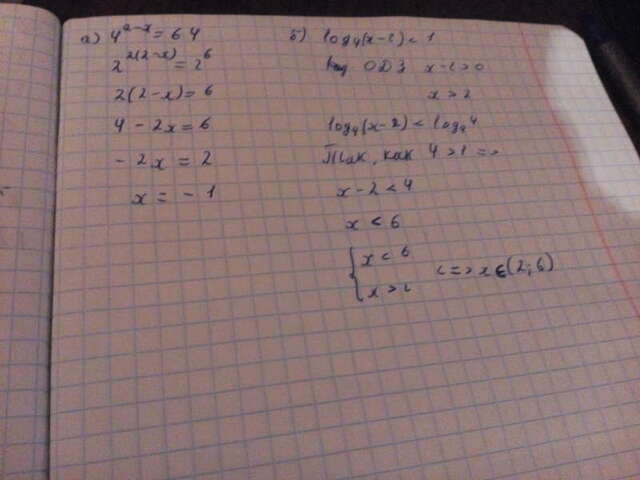 а) 4^2-x = 64
2^2(2-x) = 2^6
2(2-x) = 6
4 - 2x = 6
- 2x = 2
x = - 1
б) log₄(x-2) < 1
ОДЗ x-2>0
x > 2
log₄(x-2) < log₄4
Так, как 4 >1 =>
x-2 < 4
x < 6
{ x < 6
x > 2 <=> x ∈ (2; 6)